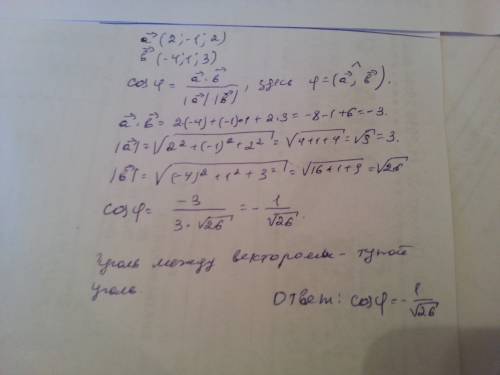 a⃗ (2; -1; 2)
b⃗ (-4; 1; 3)
cosφ = a⃗·b⃗ / |a⃗| |b⃗| , здесь φ = (a⃗,^ b⃗).
a⃗·b⃗ = 2(-4)+(-1)·1+2·3 = -8-1+6 = -3.
|a⃗| = √(2²+(-1)²+2²) = √(4+1+4) = √9 = 3.
|b⃗| = √((-4)²+1²+3²) = √(16+1+9) = √26
cosφ = -3 / (3·√26) = - 1/√26.
Угол между векторами - тупой
угол.
Ответ: cosφ = - 1/√26